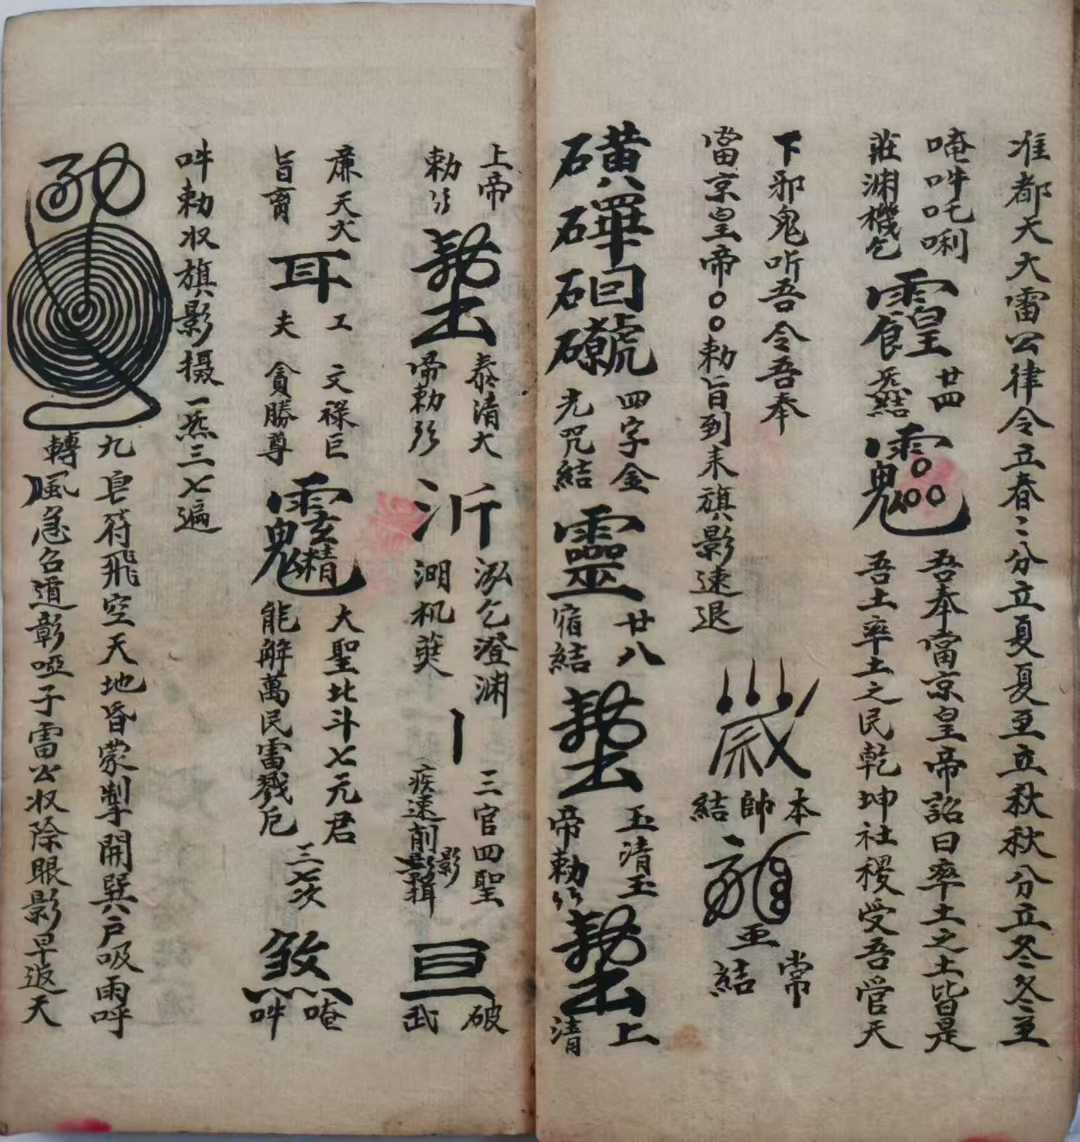 准都天大雷公律令立春〻分立夏夏至立秋秋分立冬冬至
唵吽吒唎
莊渊機乞
廿四
炁結
吾奉當京皇帝詔曰率土之士皆是
吾土率土之民乾坤社稷受吾管天
下邪鬼听吾令吾奉
當京皇帝〇〇勅旨到来旗影速退
本帥結
常
玉結
磺磾𥐻
四字金
光咒結
靈
廿八
宿結
玉清玉
帝勅
上
清
上帝
勅
泰清大
帝勅
沂
泓乞澄渊
渊机
三官四聖
疾速前
影
破
武
廉天文
旨育
耳
工 文祿巨
夫 貪勝尊
大聖北斗七元君
能解萬民雷戮厄
三七次
煞
唵
吽
吽勅収旗影摄一炁三七遍
九
轉
皂符飛空天地昏蒙掣開巽戶吸雨呼
風急召道彰啞子雷公収除眼影早返天